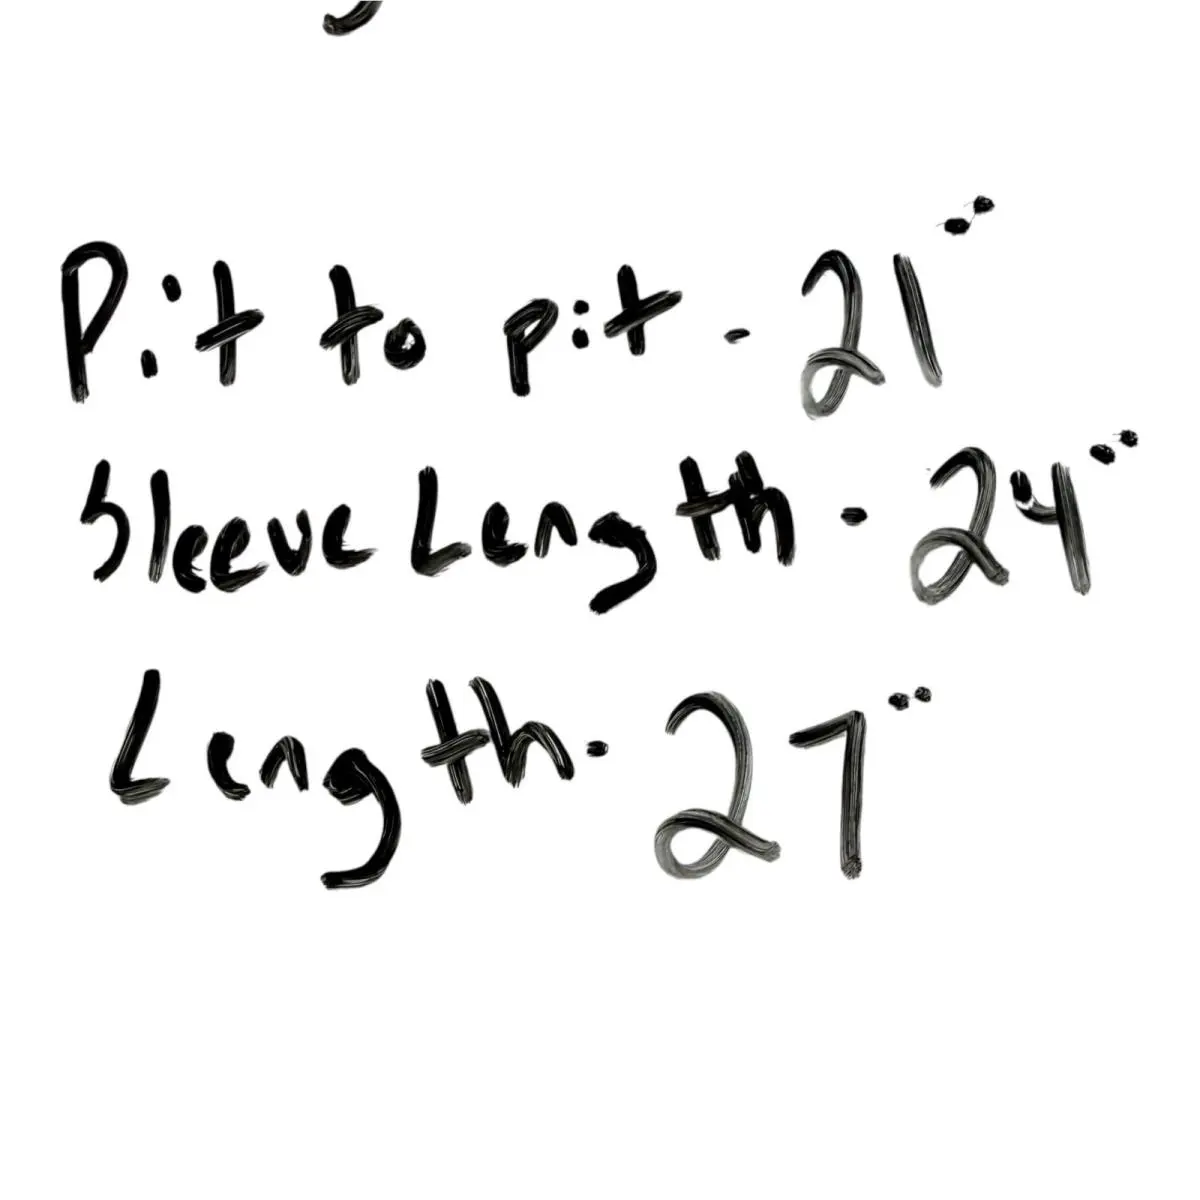 Pit to pit - 21"
Sleeve Length - 24"
Length - 27"